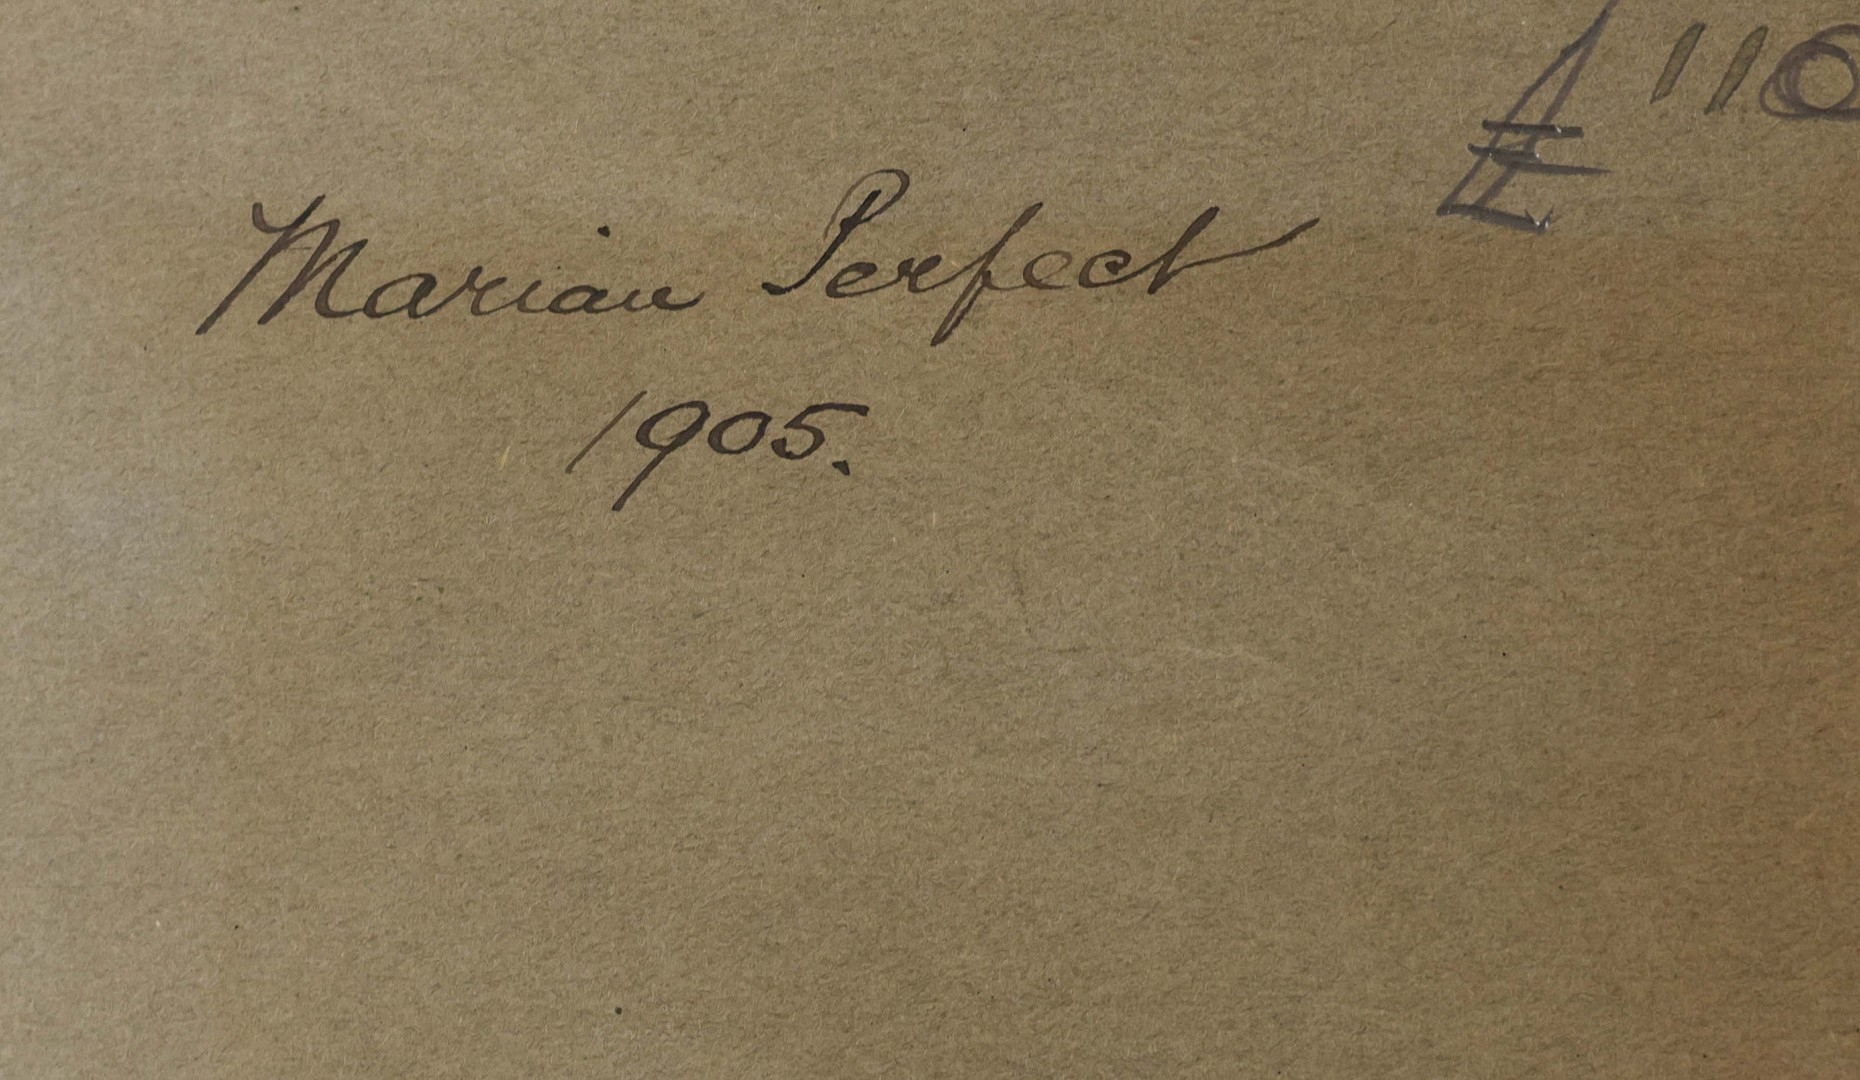 £110
Marian Perfect
1905.